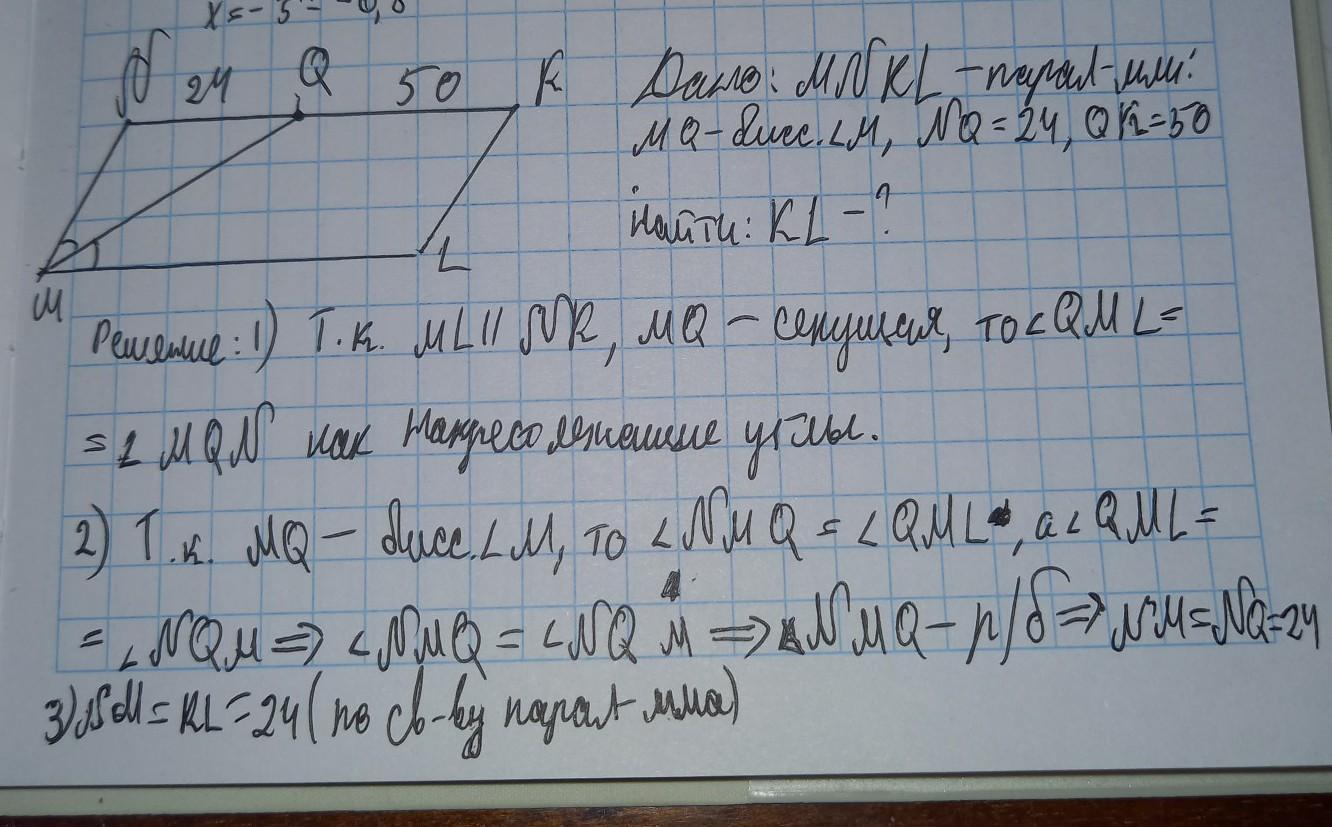 x = - 3 =
N 24 Q 50 K
M L
Дано: MNKL - парал-мм:
MQ - бисс. ∠M, NQ = 24, QK = 50
Найти: KL - ?
Решение: 1) Т.к. ML || NK, MQ - секущая, то ∠QML =
= ∠MQN как накрест лежащие углы.
2) Т.к. MQ - бисс. ∠M, то ∠NMQ = ∠QML, а ∠QML =
= ∠NQM => ∠NMQ = ∠NQM => ΔNMQ - р/б => NM = NQ = 24
3) NM = KL = 24 (по св-ву парал-мма)